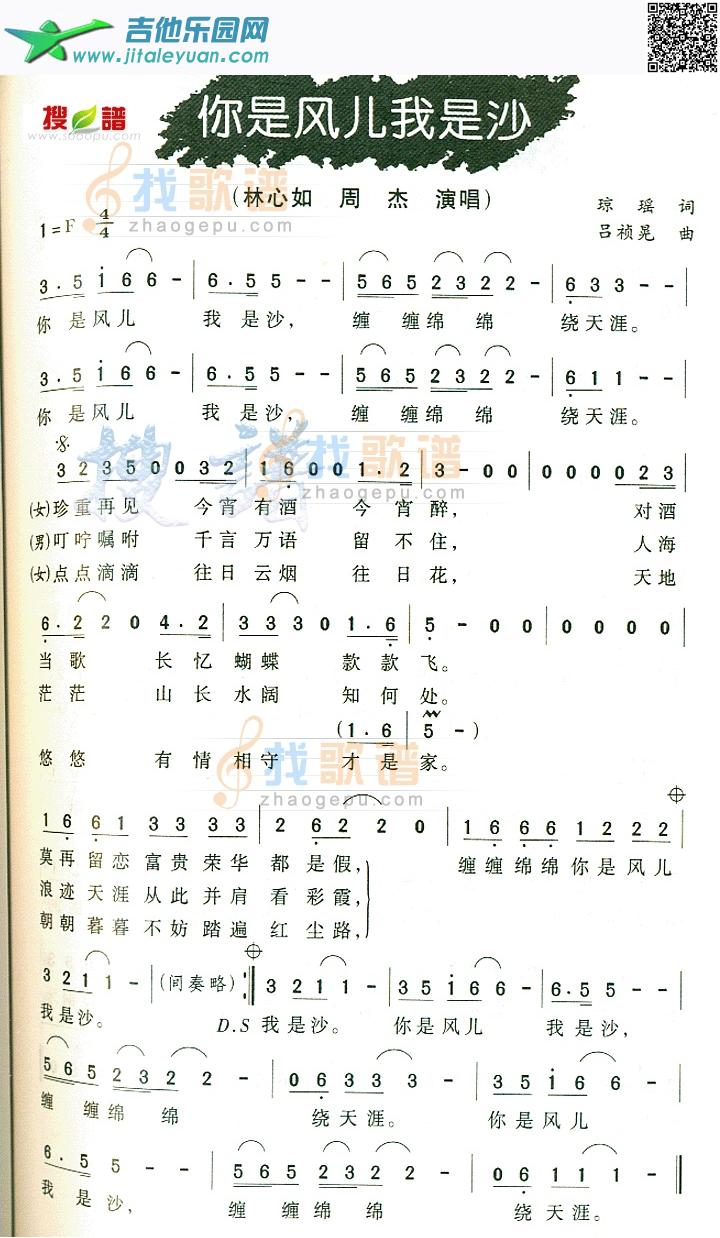 吉他乐园网
www.jitaleyuan.com
搜谱
www.sooopu.com
你是风儿我是沙
找歌谱
zhaogepu.com
(林心如 周 杰 演唱)
琼 瑶 词
1=F 4/4
吕祯晃 曲
3.5 i 6 6 - | 6.5 5 - - | 5 6 5 2 3 2 2 - | 6 3 3 - - |
你 是 风 儿 我 是 沙, 缠 缠 绵 绵 绕 天 涯。
3.5 i 6 6 - | 6.5 5 - - | 5 6 5 2 3 2 2 - | 6 1 1 - - |
你 是 风 儿 我 是 沙, 缠 缠 绵 绵 绕 天 涯。
搜 谱
找歌谱
zhaogepu.com
3 2 3 5 0 0 3 2 | 1 6 0 0 1.2 | 3 - 0 0 | 0 0 0 0 2 3 |
(女)珍重再见 今宵有酒 今宵醉, 对酒
(男)叮咛嘱咐 千言万语 留不住, 人海
(女)点点滴滴 往日云烟 往日花, 天地
6.2 2 0 4.2 | 3 3 3 0 1.6 | 5 - 0 0 | 0 0 0 0 |
当歌 长忆蝴蝶 款款飞。
茫茫 山长水阔 知何处。
(1.6 | 5 -)
悠悠 有情相守 才是家。
找歌谱
zhaogepu.com
1 6 6 1 3 3 3 3 | 2 6 2 2 0 | 1 6 6 6 1 2 2 2 |
莫再留恋富贵荣华都是假, 缠缠绵绵你是风儿
浪迹天涯从此并肩看彩霞,
朝朝暮暮不妨踏遍红尘路,
3 2 1 1 - | (间奏略) :‖ 3 2 1 1 - | 3 5 i 6 6 - | 6.5 5 - - |
我是沙。 D.S 我是沙。 你是风儿 我是沙,
5 6 5 2 3 2 2 - | 0 6 3 3 3 - | 3 5 i 6 6 - |
缠 缠绵 绵 绕天涯。 你是风儿
6.5 5 - - | 5 6 5 2 3 2 2 - | 0 6 1 1 1 - ‖
我 是 沙, 缠 缠绵 绵 绕天涯。